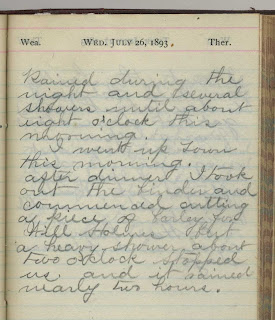 Wea. WED. JULY 26, 1893. Ther.
Rained during the
night and several
showers until about
eight o'clock this
morning.
I went up town
this morning.
after dinner I took
out the binder and
commenced cutting
a piece of barley for
Will Holmes but
a heavy shower about
two o'clock stopped
us and it rained
nearly two hours.